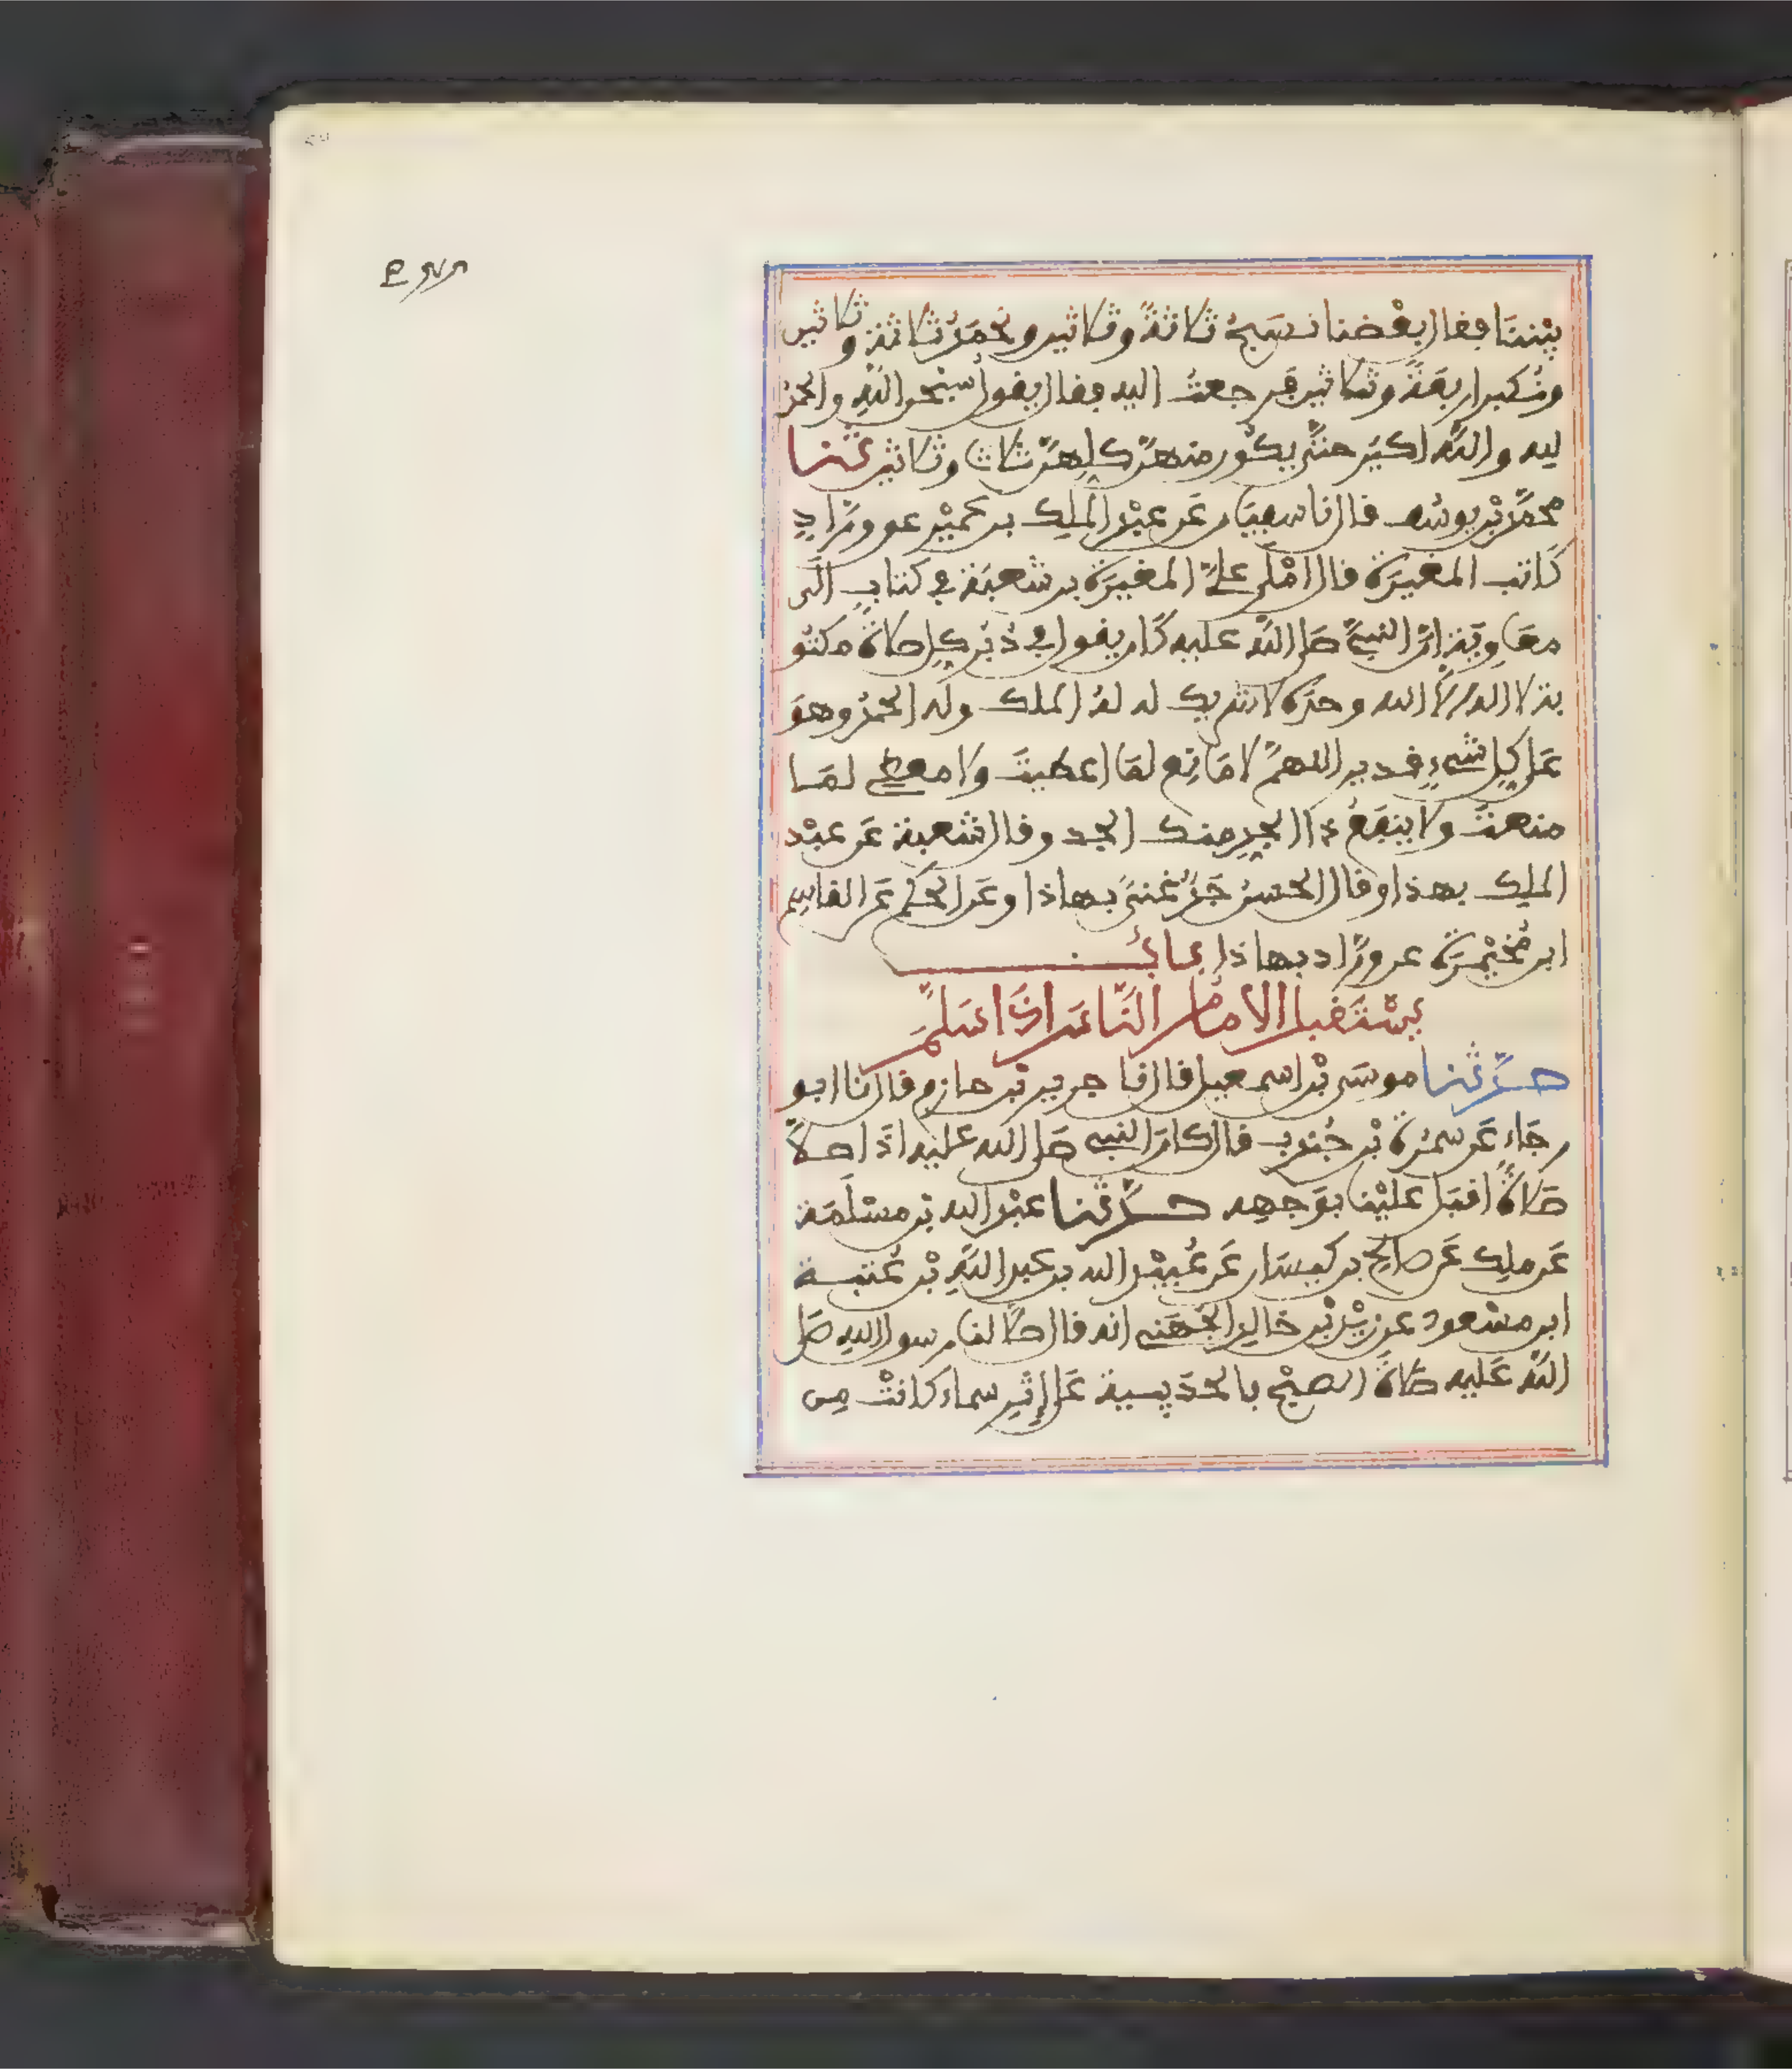 بيننا فقال بعضنا نسبح ثلاثة وثلاثين ونحمد ثلاثة وثلاثين
ونكبر أربعة وثلاثين فرجعت اليه فقال يقول سبحن الله والحمد
لله والله أكبر حتى يكون منهن كلهن ثلاث وثلاثين ثنا
محمد بن يوسف قال نا سفيان عن عبد الملك بن عمير عن وراد
كاتب المغيرة قال املى علي المغيرة بن شعبة في كتاب الى
معاوية ان النبي صلى الله عليه كان يقول في دبر كل صلاة مكتو
بة لا اله الا الله وحده لا شريك له له الملك وله الحمد وهو
على كل شيء قدير اللهم لا مانع لما اعطيت ولا معطي لما
منعت ولا ينفع ذا الجد منك الجد وقال شعبة عن عبد
الملك بهذا وقال الحسن جد غنى بهاذا وعن الحكم عن القاسم
ابن مخيمرة عن وراد بهاذا باب
يستقبل الامام الناس اذا سلم
حدثنا موسى بن اسمعيل قال نا جرير بن حازم قال نا ابو
رجاء عن سمرة بن جندب قال كان النبي صلى الله عليه اذا صلا
صلاة اقبل علينا بوجهه حدثنا عبد الله بن مسلمة
عن ملك عن صالح بن كيسان عن عبيد الله بن عبد الله بن عتبة
ابن مسعود عن زيد بن خالد الجهني انه قال صلا لنا رسول الله صلى
الله عليه صلاة الصبح بالحديبية على إثر سماء كانت من